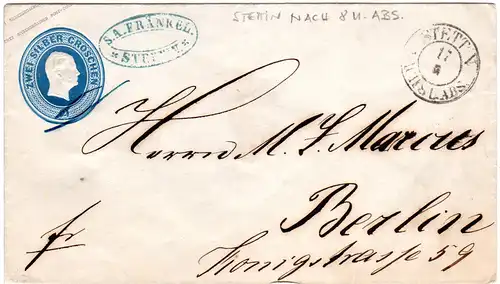 ZWEI SILBER GROSCHEN
S.A. FRÄNKEL.
STETTIN.
STETTIN NACH 8 U. ABS.
STETTIN
17
ABS.
Herrn M. S. Marcus
Berlin
fr
Königstrasse 59